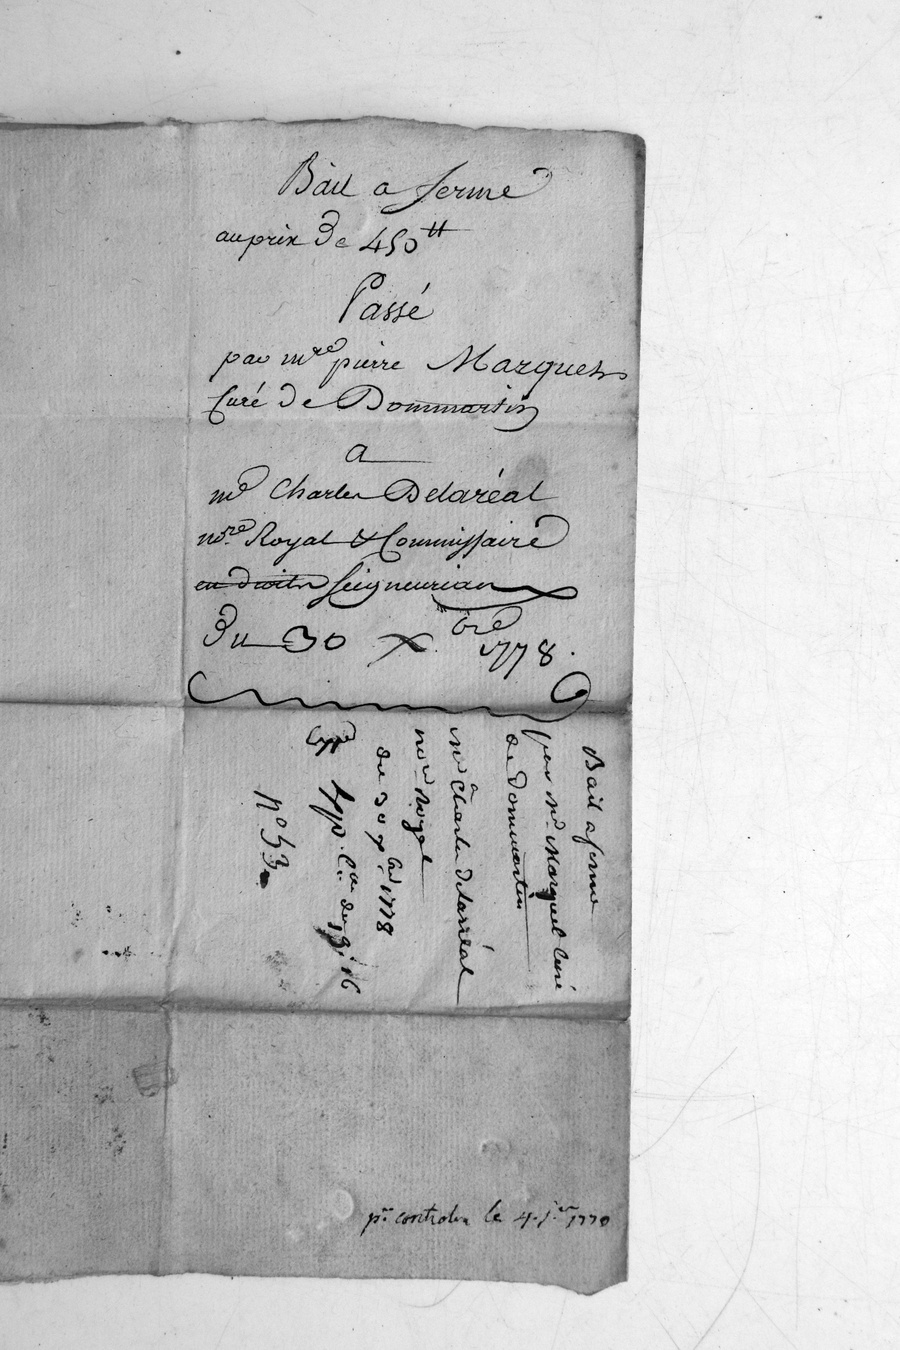 Bail a ferme
au prix de 450 tt
Passé
par mre pierre Marquet
Curé de Dommartin
a
me Charles Delaréal
nore Royal & Commissaire
en droits seigneuriaux
Du 30 Xbre 1778.
Bail a ferme
par Mr Marquet Curé
de Dommartin
a
Mr Charles Delaréal
nore Royal
du 30 Xbre 1778
nº 53
pr controler le 4. jer 1779